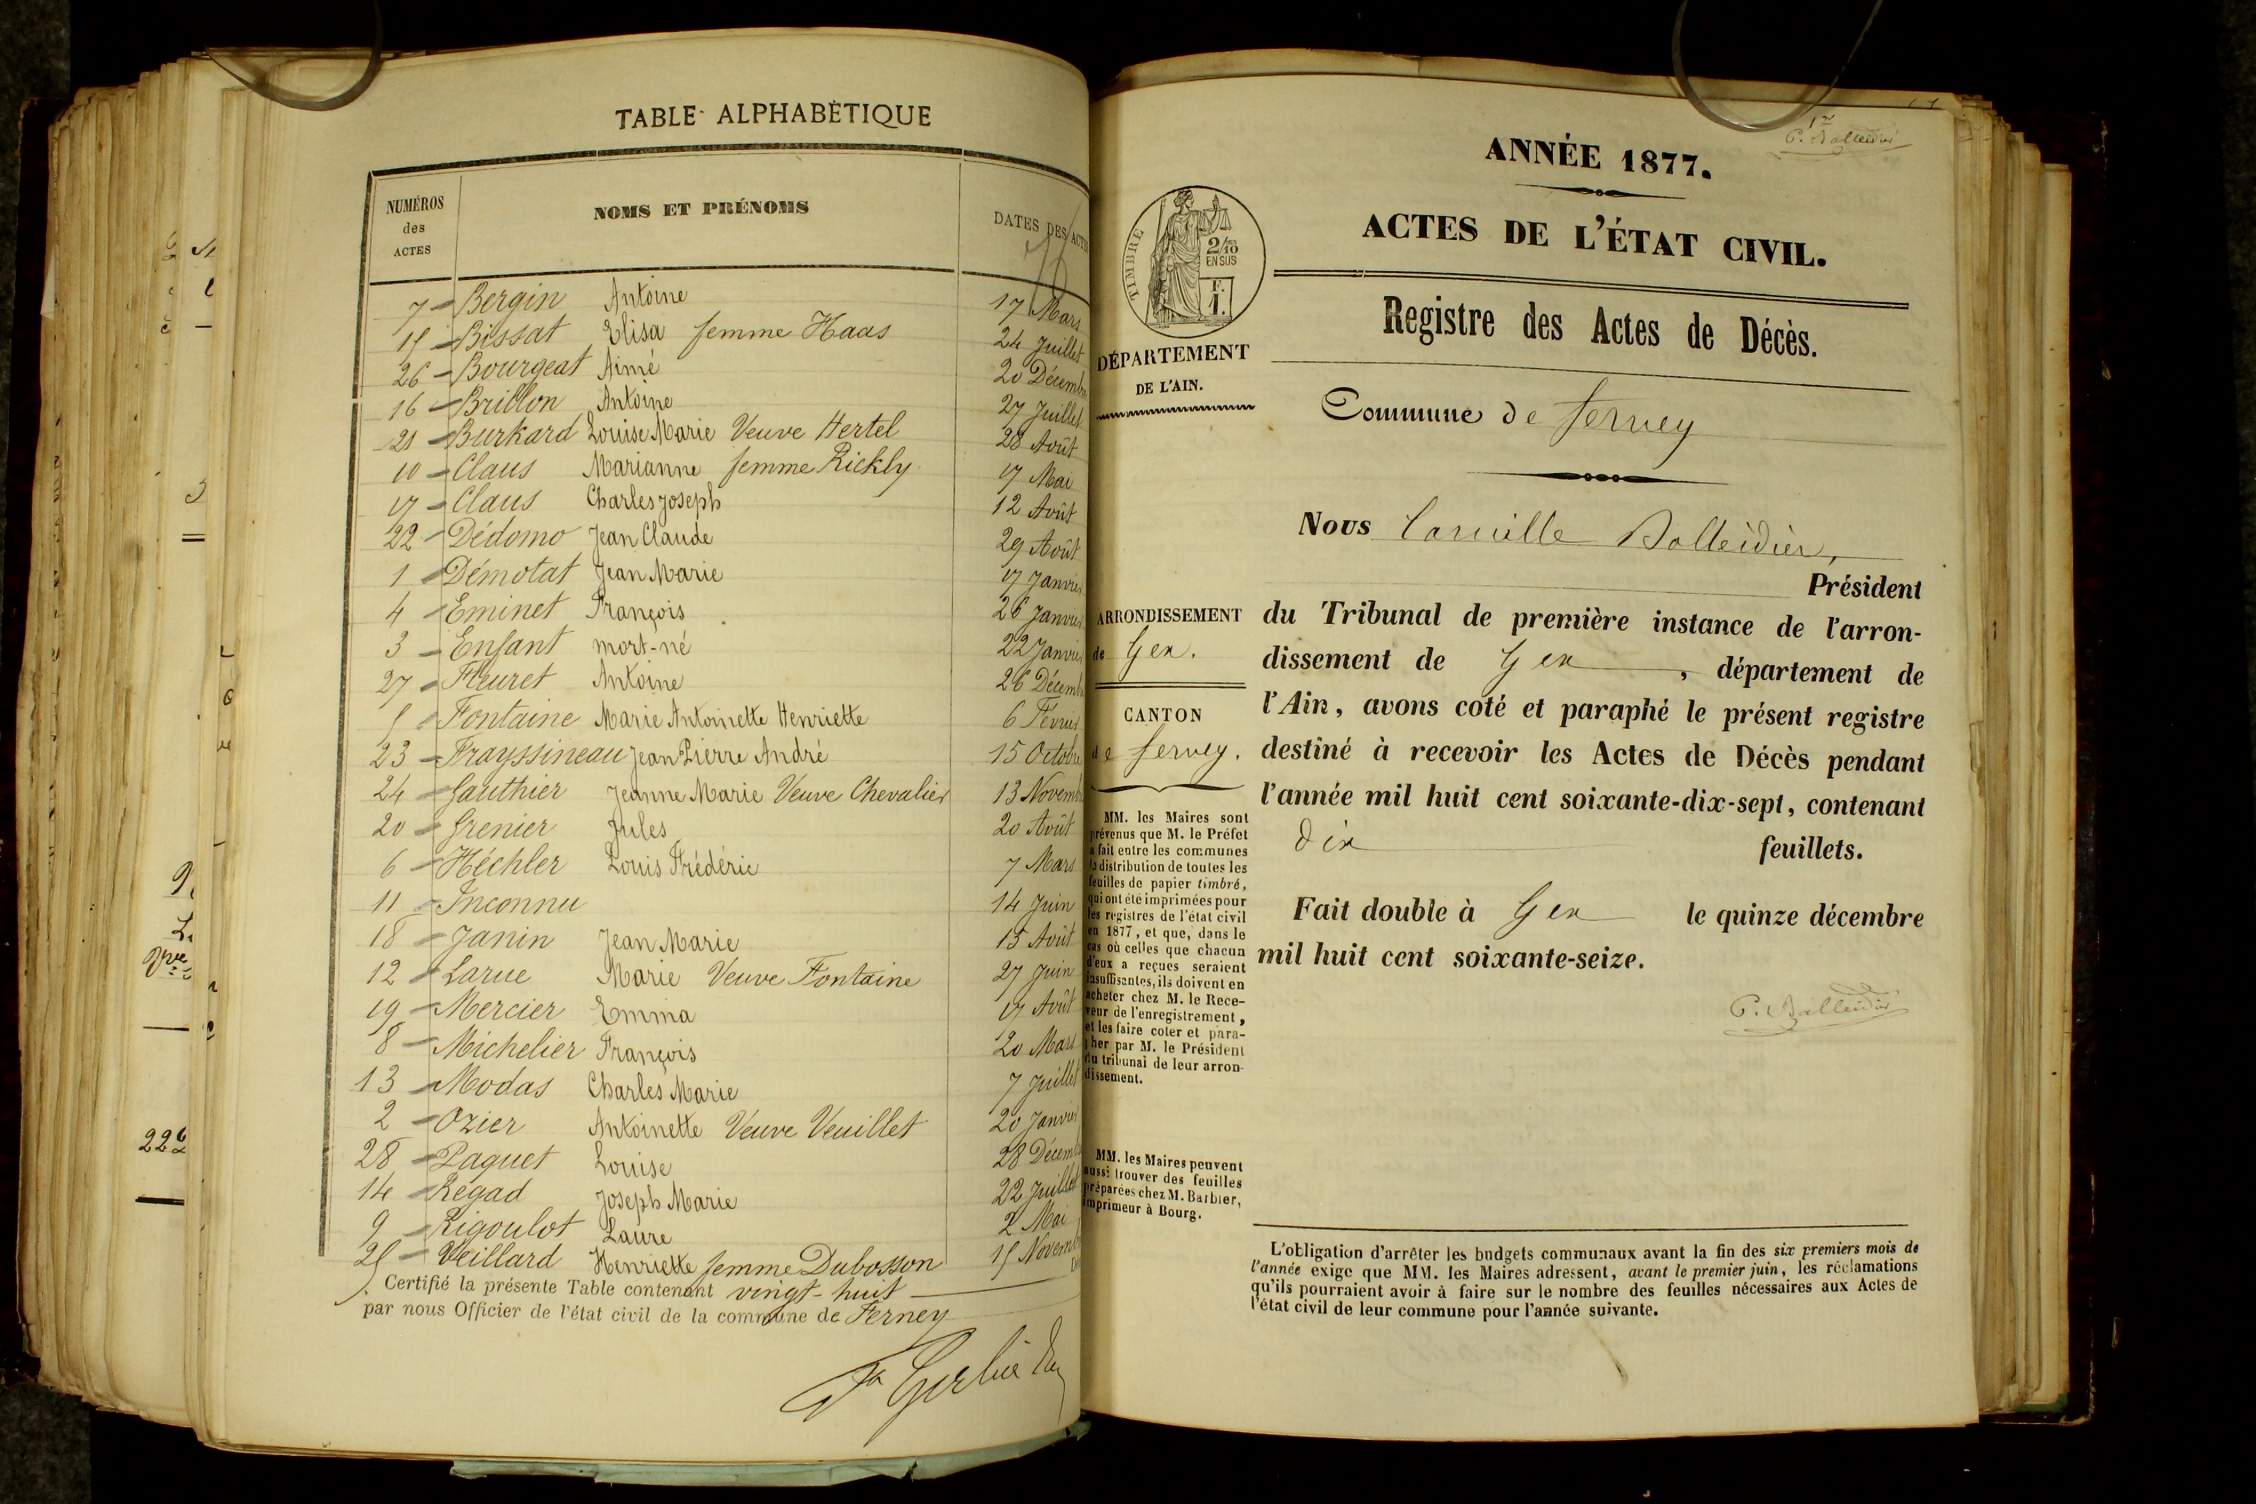 TABLE ALPHABÉTIQUE
NUMÉROS des ACTES
NOMS ET PRÉNOMS
DATES DES ACTES
7 Bergin Antoine 17 Mars
15 Bissat Elisa femme Haas 24 Juillet
26 Bourgeat Aimé 20 Décembre
16 Brillon Antoine 27 Juillet
21 Burkard Louise Marie Veuve Hertel 28 Août
10 Claus Marianne femme Rickly 17 Mai
17 Claus Charles Joseph 12 Août
22 Dédomo Jean Claude 29 Août
1 Démotat Jean Marie 17 Janvier
4 Eminet François 26 Janvier
3 Enfant mort-né 22 Janvier
27 Fleuret Antoine 26 Décemb
5 Fontaine Marie Antoinette Henriette 6 Février
23 Frayssineau Jean Pierre André 15 Octobre
24 Gauthier Jeanne Marie Veuve Chevalier 13 Novemb
20 Grenier Jules 20 Août
6 Héchler Louis Frédéric 7 Mars
11 Inconnu 14 Juin
18 Janin Jean Marie 15 Août
12 Larue Marie Veuve Fontaine 27 Juin
19 Mercier Emma 17 Août
8 Michelier François 20 Mars
13 Modas Charles Marie 7 Juillet
2 Ozier Antoinette Veuve Veuillet 20 Janvier
28 Paquet Louise 28 Décemb
14 Regad Joseph Marie 22 Juillet
9 Rigoulot Laure 2 Mai
25 Veillard Henriette femme Dubosson 15 Novemb
Certifié la présente Table contenant vingt-huit
par nous Officier de l'état civil de la commune de Ferney
17
ANNÉE 1877.
ACTES DE L'ÉTAT CIVIL.
TIMBRE
2/10 EN SUS
F. 1.
Registre des Actes de Décès.
DÉPARTEMENT
DE L'AIN.
Commune de Ferney
Nous Camille Balleidier,
Président
du Tribunal de première instance de l'arron-
dissement de Gex, département de
l'Ain, avons coté et paraphé le présent registre
destiné à recevoir les Actes de Décès pendant
l'année mil huit cent soixante-dix-sept, contenant
dix feuillets.
Fait double à Gex le quinze décembre
mil huit cent soixante-seize.
C. Balleidier
ARRONDISSEMENT
de Gex.
CANTON
de Ferney.
MM. les Maires sont
prévenus que M. le Préfet
a fait entre les communes
la distribution de toutes les
feuilles de papier timbré,
qui ont été imprimées pour
les registres de l'état civil
en 1877, et que, dans le
cas où celles que chacun
d'eux a reçues seraient
insuffisantes, ils doivent en
acheter chez M. le Rece-
veur de l'enregistrement,
et les faire coter et para-
pher par M. le Président
du tribunal de leur arron-
dissement.
MM. les Maires peuvent
aussi trouver des feuilles
préparées chez M. Barbier,
imprimeur à Bourg.
L'obligation d'arrêter les budgets communaux avant la fin des six premiers mois de
l'année exige que MM. les Maires adressent, avant le premier juin, les réclamations
qu'ils pourraient avoir à faire sur le nombre des feuilles nécessaires aux Actes de
l'état civil de leur commune pour l'année suivante.